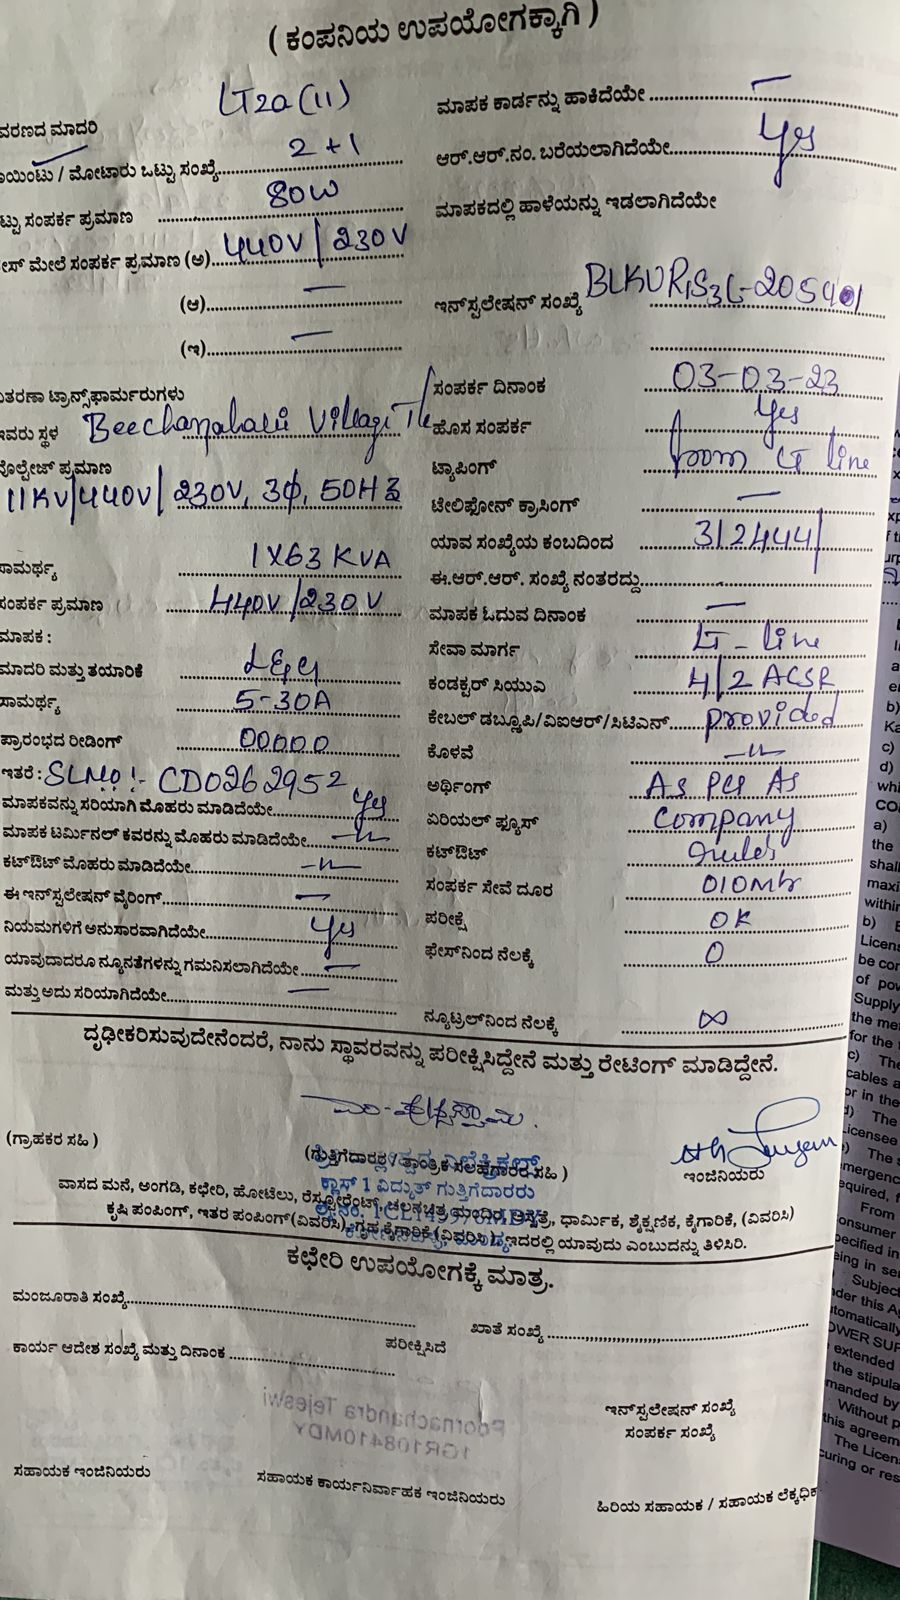 ( ಕಂಪನಿಯ ಉಪಯೋಗಕ್ಕಾಗಿ )
ವರಣದ ಮಾದರಿ LT2a(11)
ಾಯಿಂಟು / ಮೋಟಾರು ಒಟ್ಟು ಸಂಖ್ಯೆ 2+1
ಟ್ಟು ಸಂಪರ್ಕ ಪ್ರಮಾಣ 80W
ೇಸ್ ಮೇಲೆ ಸಂಪರ್ಕ ಪ್ರಮಾಣ (ಅ) 440V/230V
(ಆ) —
(ಇ) —
ತರಣಾ ಟ್ರಾನ್ಸ್‌ಫಾರ್ಮರುಗಳು
ಇವರು ಸ್ಥಳ Village
ವೋಲ್ಟೇಜ್ ಪ್ರಮಾಣ
11KV/440V/230V, 3ф, 50HZ
ಸಾಮರ್ಥ್ಯ 1X63 KVA
ಸಂಪರ್ಕ ಪ್ರಮಾಣ 440V/230V
ಮಾಪಕ :
ಮಾದರಿ ಮತ್ತು ತಯಾರಿಕೆ
ಸಾಮರ್ಥ್ಯ 5-30A
ಪ್ರಾರಂಭದ ರೀಡಿಂಗ್ 00000
ಇತರೆ : SLNo:- CD0262952
ಮಾಪಕವನ್ನು ಸರಿಯಾಗಿ ಮೊಹರು ಮಾಡಿದೆಯೇ yes
ಮಾಪಕ ಟರ್ಮಿನಲ್ ಕವರನ್ನು ಮೊಹರು ಮಾಡಿದೆಯೇ —"—
ಕಟ್‌ಔಟ್ ಮೊಹರು ಮಾಡಿದೆಯೇ —"—
ಈ ಇನ್‌ಸ್ಟಲೇಷನ್ ವೈರಿಂಗ್ —
ನಿಯಮಗಳಿಗೆ ಅನುಸಾರವಾಗಿದೆಯೇ yes
ಯಾವುದಾದರೂ ನ್ಯೂನತೆಗಳನ್ನು ಗಮನಿಸಲಾಗಿದೆಯೇ —
ಮತ್ತು ಅದು ಸರಿಯಾಗಿದೆಯೇ —
ಮಾಪಕ ಕಾರ್ಡನ್ನು ಹಾಕಿದೆಯೇ —
ಆರ್.ಆರ್.ನಂ. ಬರೆಯಲಾಗಿದೆಯೇ yes
ಮಾಪಕದಲ್ಲಿ ಹಾಳೆಯನ್ನು ಇಡಲಾಗಿದೆಯೇ
ಇನ್‌ಸ್ಟಲೇಷನ್ ಸಂಖ್ಯೆ
ಸಂಪರ್ಕ ದಿನಾಂಕ 03-03-23
ಹೊಸ ಸಂಪರ್ಕ yes
ಟ್ಯಾಪಿಂಗ್ from LT line
ಟೇಲಿಫೋನ್ ಕ್ರಾಸಿಂಗ್ —
ಯಾವ ಸಂಖ್ಯೆಯ ಕಂಬದಿಂದ 3/2444/
ಈ.ಆರ್.ಆರ್. ಸಂಖ್ಯೆ ನಂತರದ್ದು
ಮಾಪಕ ಓದುವ ದಿನಾಂಕ —
ಸೇವಾ ಮಾರ್ಗ LT-line
ಕಂಡಕ್ಟರ್ ಸಿಯುಎ 4/2 ACSR
ಕೇಬಲ್ ಡಬ್ಲೂಪಿ/ವಿಐಆರ್/ಸಿಟಿಎನ್ provided
ಕೊಳವೆ —"—
ಅರ್ಥಿಂಗ್ As per As
ಏರಿಯಲ್ ಫ್ಯೂಸ್ company
ಕಟ್‌ಔಟ್ rules
ಸಂಪರ್ಕ ಸೇವೆ ದೂರ
ಪರೀಕ್ಷೆ OK
ಫೇಸ್‌ನಿಂದ ನೆಲಕ್ಕೆ 0
ನ್ಯೂಟ್ರಲ್‌ನಿಂದ ನೆಲಕ್ಕೆ ∞
ದೃಢೀಕರಿಸುವುದೇನೆಂದರೆ, ನಾನು ಸ್ಥಾವರವನ್ನು ಪರೀಕ್ಷಿಸಿದ್ದೇನೆ ಮತ್ತು ರೇಟಿಂಗ್ ಮಾಡಿದ್ದೇನೆ.
(ಗ್ರಾಹಕರ ಸಹಿ )
(ಗುತ್ತಿಗೆದಾರರ / ತಾಂತ್ರಿಕ ಸಲಹೆಗಾರರ ಸಹಿ )
ಇಂಜಿನಿಯರು
ಕ್ಲಾಸ್ 1 ವಿದ್ಯುತ್ ಗುತ್ತಿಗೆದಾರರು
ವಾಸದ ಮನೆ, ಅಂಗಡಿ, ಕಛೇರಿ, ಹೋಟೆಲು, ರೆಸ್ಟೋರೆಂಟ್, ಚಲನಚಿತ್ರ ಮಂದಿರ, ಆಸ್ಪತ್ರೆ, ಧಾರ್ಮಿಕ, ಶೈಕ್ಷಣಿಕ, ಕೈಗಾರಿಕೆ, (ವಿವರಿಸಿ)
ಕೃಷಿ ಪಂಪಿಂಗ್, ಇತರ ಪಂಪಿಂಗ್(ವಿವರಿಸಿ), ಗೃಹ ಕೈಗಾರಿಕೆ (ವಿವರಿಸಿ). ಇದರಲ್ಲಿ ಯಾವುದು ಎಂಬುದನ್ನು ತಿಳಿಸಿರಿ.
ಕಛೇರಿ ಉಪಯೋಗಕ್ಕೆ ಮಾತ್ರ.
ಮಂಜೂರಾತಿ ಸಂಖ್ಯೆ
ಖಾತೆ ಸಂಖ್ಯೆ
ಕಾರ್ಯ ಆದೇಶ ಸಂಖ್ಯೆ ಮತ್ತು ದಿನಾಂಕ
ಪರೀಕ್ಷಿಸಿದೆ
Poornachandra Tejeswi
1GR108410MDY
ಇನ್‌ಸ್ಟಲೇಷನ್ ಸಂಖ್ಯೆ
ಸಂಪರ್ಕ ಸಂಖ್ಯೆ
ಸಹಾಯಕ ಇಂಜಿನಿಯರು
ಸಹಾಯಕ ಕಾರ್ಯನಿರ್ವಾಹಕ ಇಂಜಿನಿಯರು
ಹಿರಿಯ ಸಹಾಯಕ / ಸಹಾಯಕ ಲೆಕ್ಕಧಿಕ